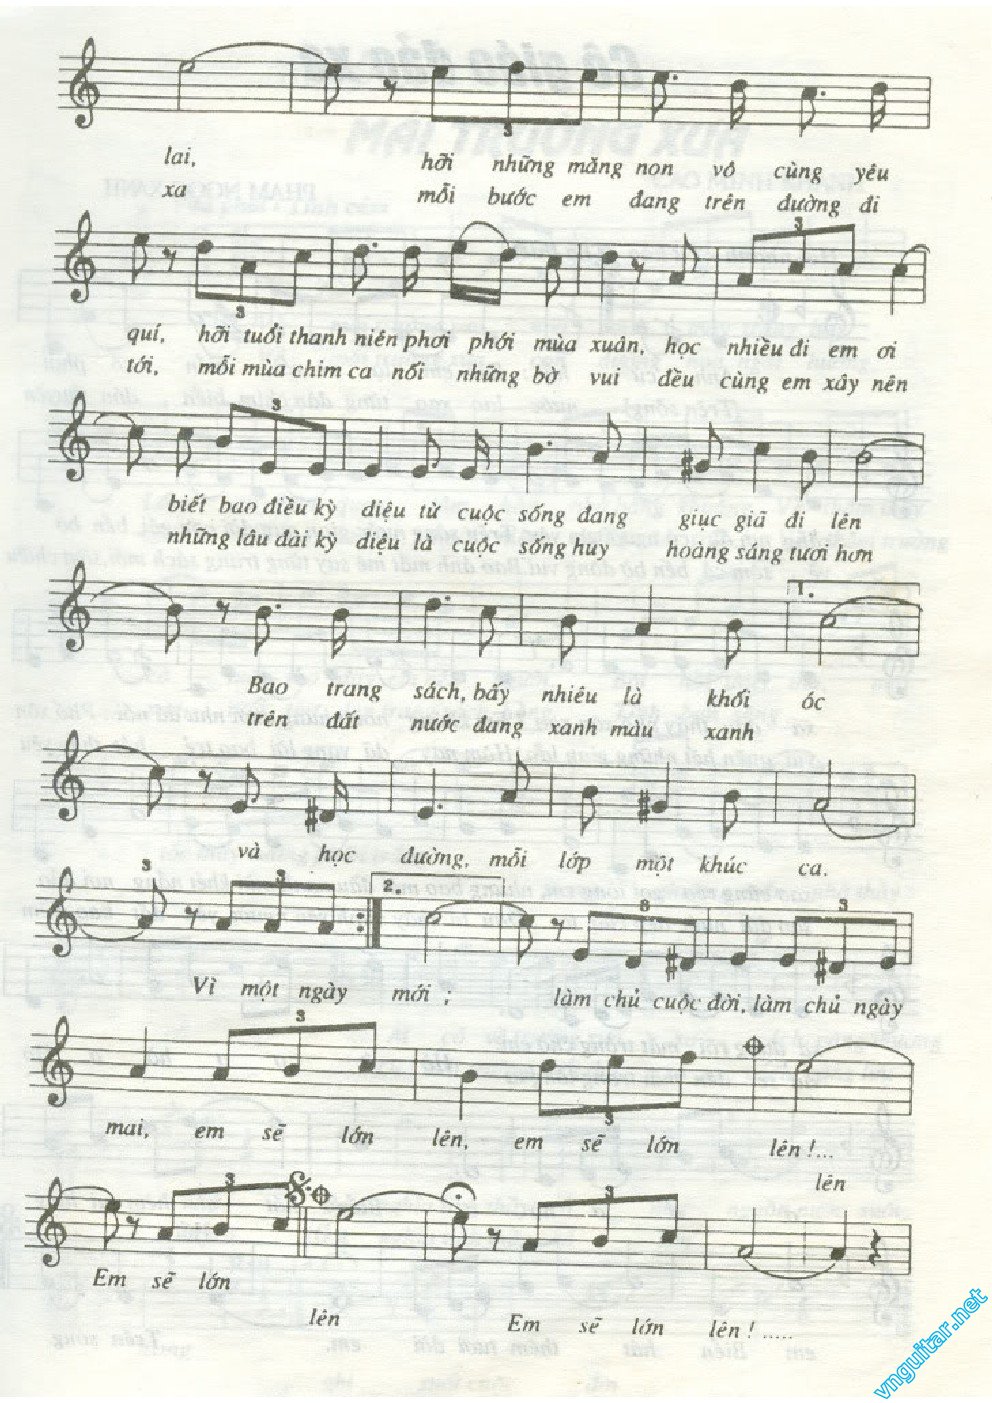 lai, hỡi những măng non vô cùng yêu
xa mỗi bước em đang trên đường đi
3
3
quí, hỡi tuổi thanh niên phơi phới mùa xuân, học nhiều đi em ơi
tới, mỗi mùa chim ca nối những bờ vui đều cùng em xây nên
3
biết bao điều kỳ diệu từ cuộc sống đang giục giã đi lên
những lâu đài kỳ diệu là cuộc sống huy hoàng sáng tươi hơn
1.
Bao trang sách, bấy nhiêu là khối óc
trên đất nước đang xanh màu xanh
và học đường, mỗi lớp một khúc ca.
3 3 2. 3 3
Vì một ngày mới ; làm chủ cuộc đời, làm chủ ngày
3
mai, em sẽ lớn lên, em sẽ lớn lên !...
lên
3 3
Em sẽ lớn
lên Em sẽ lớn lên ! .....
vnguitar.net